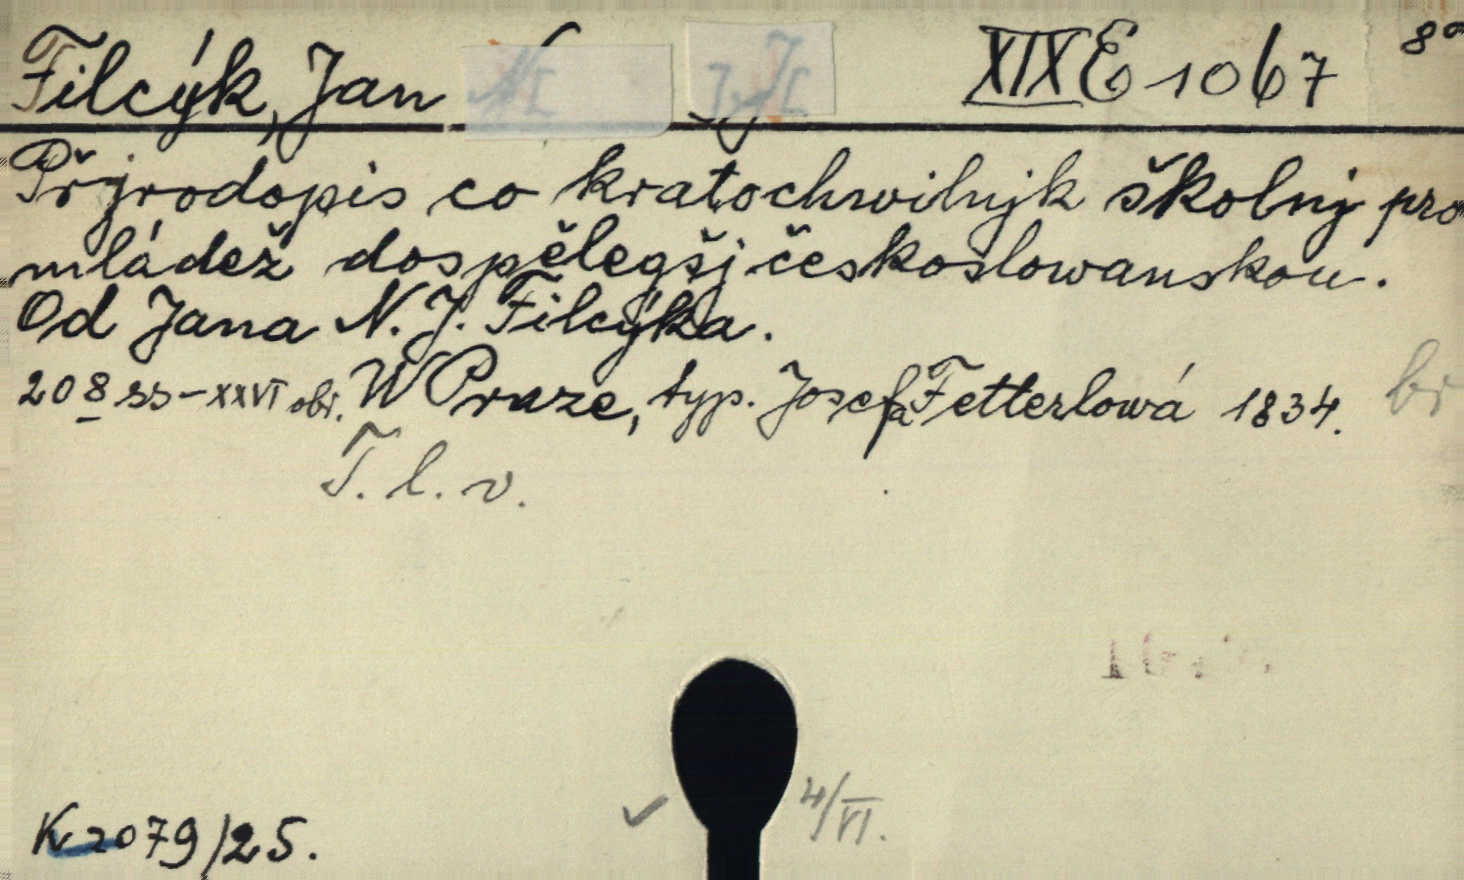 Filcýk, Jan XIX E 1067 8°
Přjrodopis co kratochwilnjk školnj pro
mládež dospělegšj českoslowanskou.
Od Jana N. J. Filcýka.
208 ss - XXVI obr. W Praze, typ. Josefa Fetterlowá 1834. br
T. l. v.
4/VI.
K 2079/25.